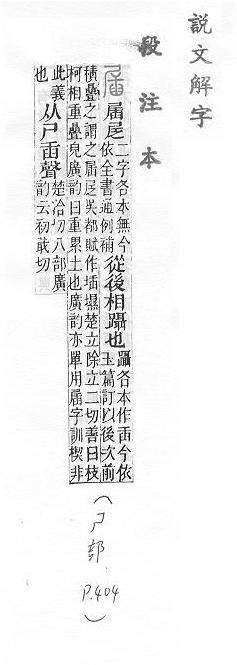 説文解字
段注本
㞚㞙
二字各本無今
依全書通例補
從後相躡也
躡各本作臿今依
玉篇訂以後次前
積疊之謂之㞚㞙吳都賦作楚立除立二切善曰枝
柯相重疊皃廣韵曰重累土也廣韵亦單用㞚字訓楔非
此義
也
从尸臿聲
楚洽切八部廣
韵云初戢切
(尸部 P.404)